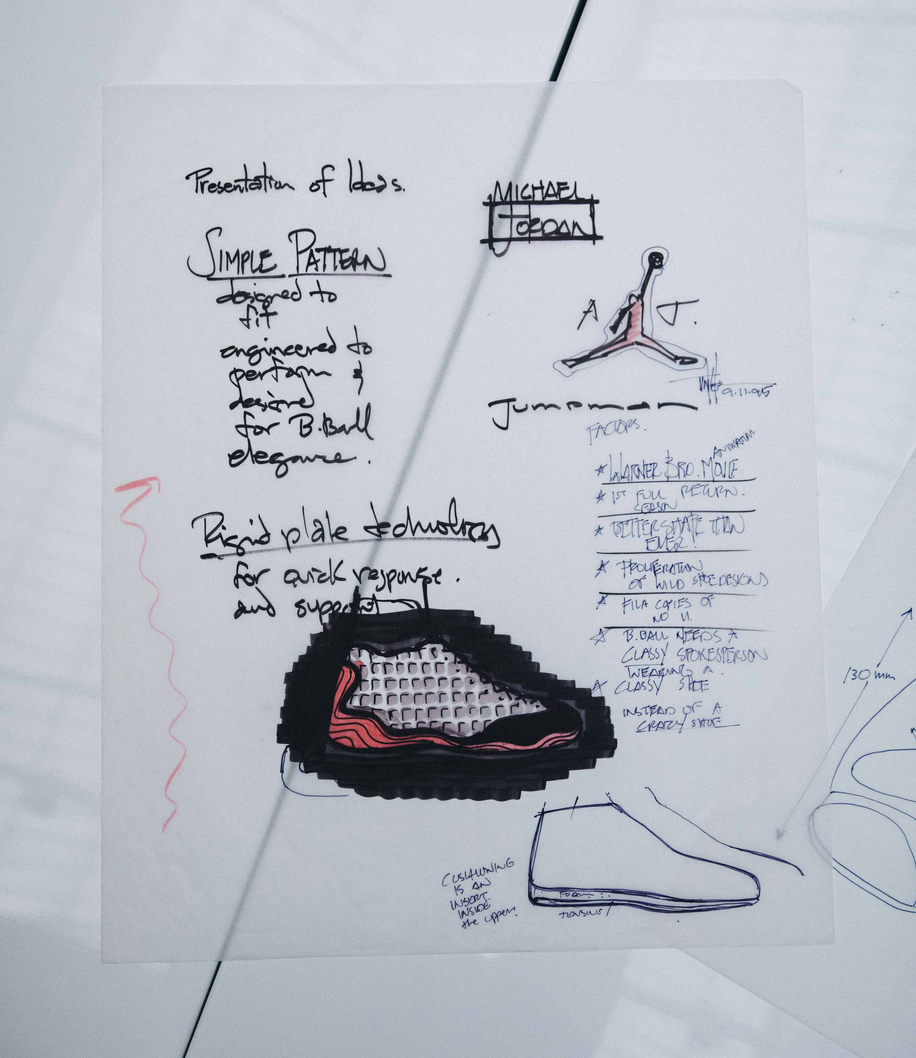 Presentation of Ideas.
SIMPLE PATTERN
designed to
fit
engineered to
perform &
designed
for B.Ball
elegance.
Rigid plate technology
for quick response.
and support
MICHAEL
JORDAN
A J.
9.11.95
Jumpman
FACTORS.
* WARNER BRO. MOVIE
* 1ST FULL RETURN.
SEASON
* BETTER SHAPE THAN
EVER!
* PROLIFERATION
OF WILD SHOE DESIGNS
* FILA COPIES OF
NO 11.
* B.BALL NEEDS A
CLASSY SPOKESPERSON
WEARING A.
* CLASSY SHOE
INSTEAD OF A
CRAZY SHOE
130 mm
CUSHIONING
IS AN
INSERT
INSIDE
the upper.